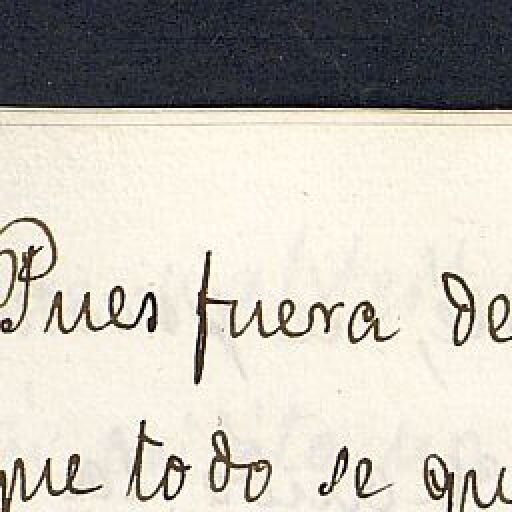 Pues fuera de
que todo se qu